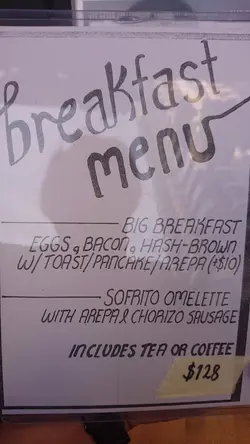 breakfast
menu
BIG BREAKFAST
EGGS, BACON, HASH-BROWN
W/ TOAST/PANCAKE/AREPA (+$10)
SOFRITO OMELETTE
WITH AREPA & CHORIZO SAUSAGE
INCLUDES TEA OR COFFEE
$128